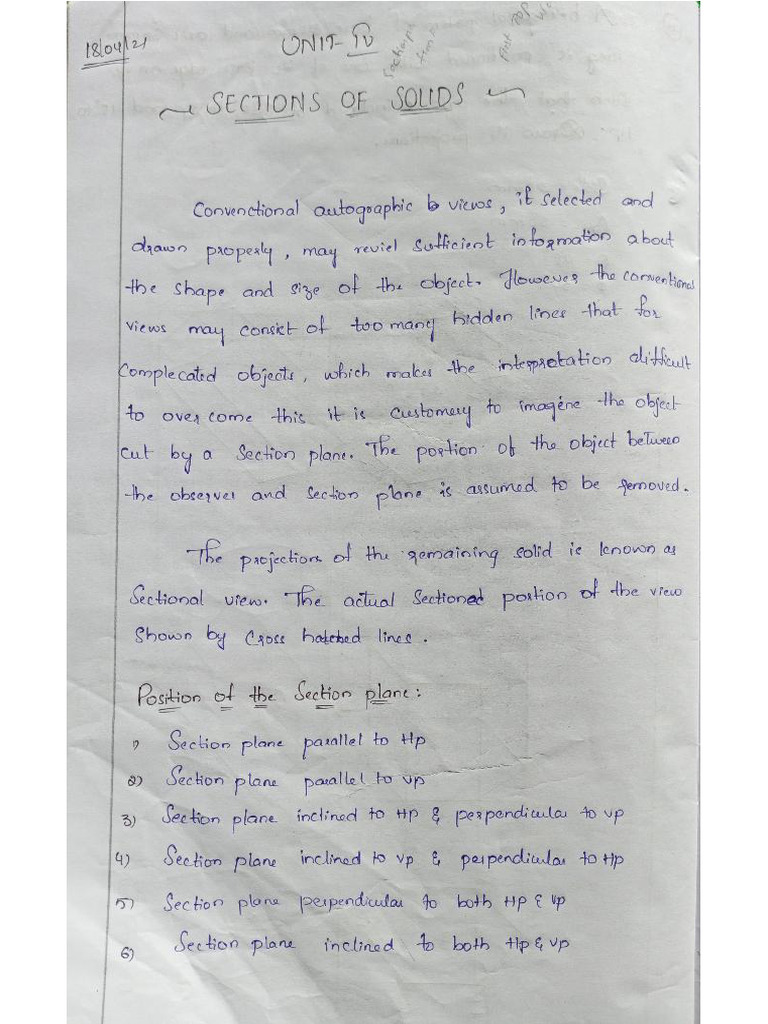 18/04/21
UNIT-IV
SECTIONS OF SOLIDS
Convenctional autographic views, if selected and
drawn properly, may reviel sufficient information about
the shape and size of the object. However the conventional
views may consict of too many hidden lines that for
complecated objects, which makes the interpretation difficult
to over come this it is customery to imagine the object
cut by a section plane. The portion of the object between
the observer and section plane is assumed to be removed.
The projection of the remaining solid is known as
Sectional view. The actual sectioned portion of the view
shown by cross hatched lines.
Position of the Section plane:
1) Section plane parallel to Hp
2) Section plane parallel to vp
3) Section plane inclined to Hp & perpendicular to vp
4) Section plane inclined to vp & perpendicular to Hp
5) Section plane perpendicular to both Hp & vp
6) Section plane inclined to both Hp & vp